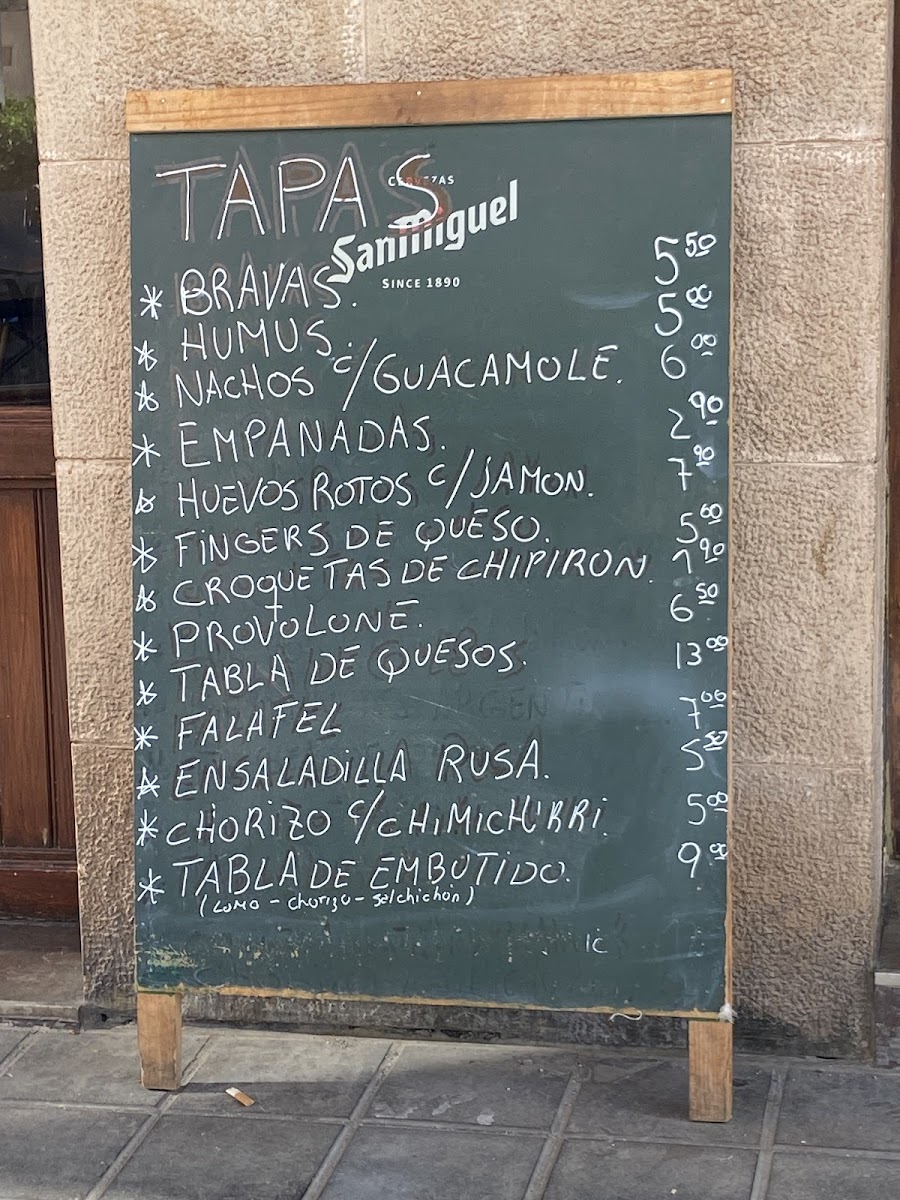 TAPAS
CERVEZAS
SanMiguel
SINCE 1890
* BRAVAS. 5 50
* HUMUS. 5 00
* NACHOS C/GUACAMOLE. 6 00
* EMPANADAS. 2 90
* HUEVOS ROTOS C/JAMON. 7 90
* FINGERS DE QUESO. 5 00
* CROQUETAS DE CHIPIRON. 1 90
* PROVOLONE. 6 50
* TABLA DE QUESOS. 13 00
* FALAFEL 7 00
* ENSALADILLA RUSA. 5 50
* CHORIZO C/CHIMICHURRI. 5 00
* TABLA DE EMBUTIDO. 9 00
(LOMO - chorizo - Salchichón)